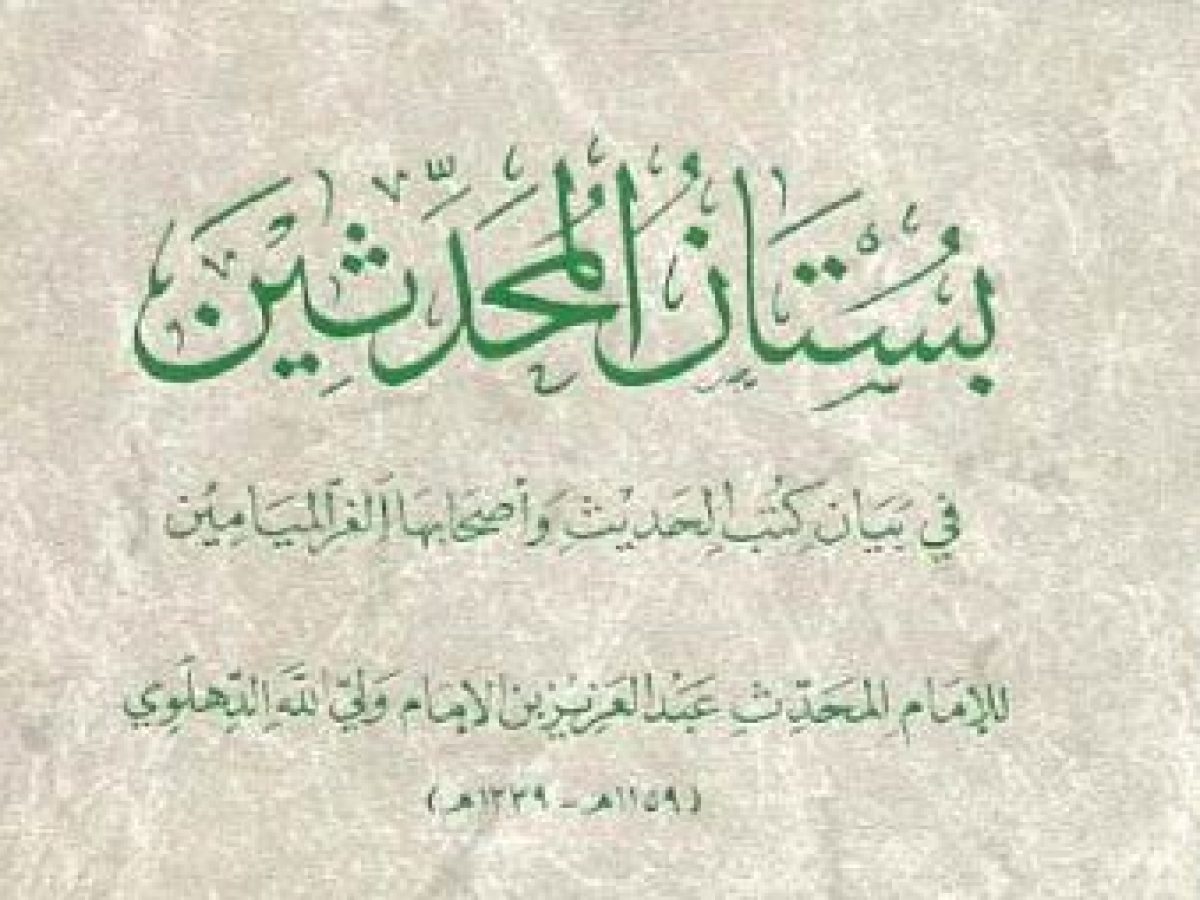 بُسْتَانُ المُحَدِّثِينَ
في بَيَان كُتُب الحَديْثِ وَأصْحَابهَا الغُرِّ المَيَامِيْن
للإمَام المحَدِّث عَبْد العَزيْز بن الإمَام وَليّ اللَّه الدِّهلَوي
(١١٥٩هـ - ١٢٣٩هـ)